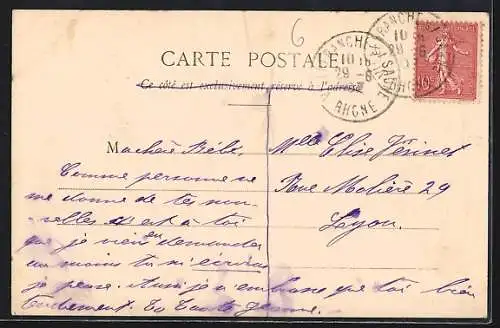 6
CARTE POSTALE
Ce côté est exclusivement réservé à l'adresse
VILLEFRANCHE-S-SAONE
10
29 - 6
RHONE
10
29
10c
Mlle Elise
Rue Molière 29
Lyon.
Ma chère Bébé.
Comme personne ne
me donne de tes nou-
velles c'est à toi
que je viens en demander
au moins tu m'écriras
je pense. Aussi je n'embrasse que toi bien
tendrement. Ta Tante Jeanne.